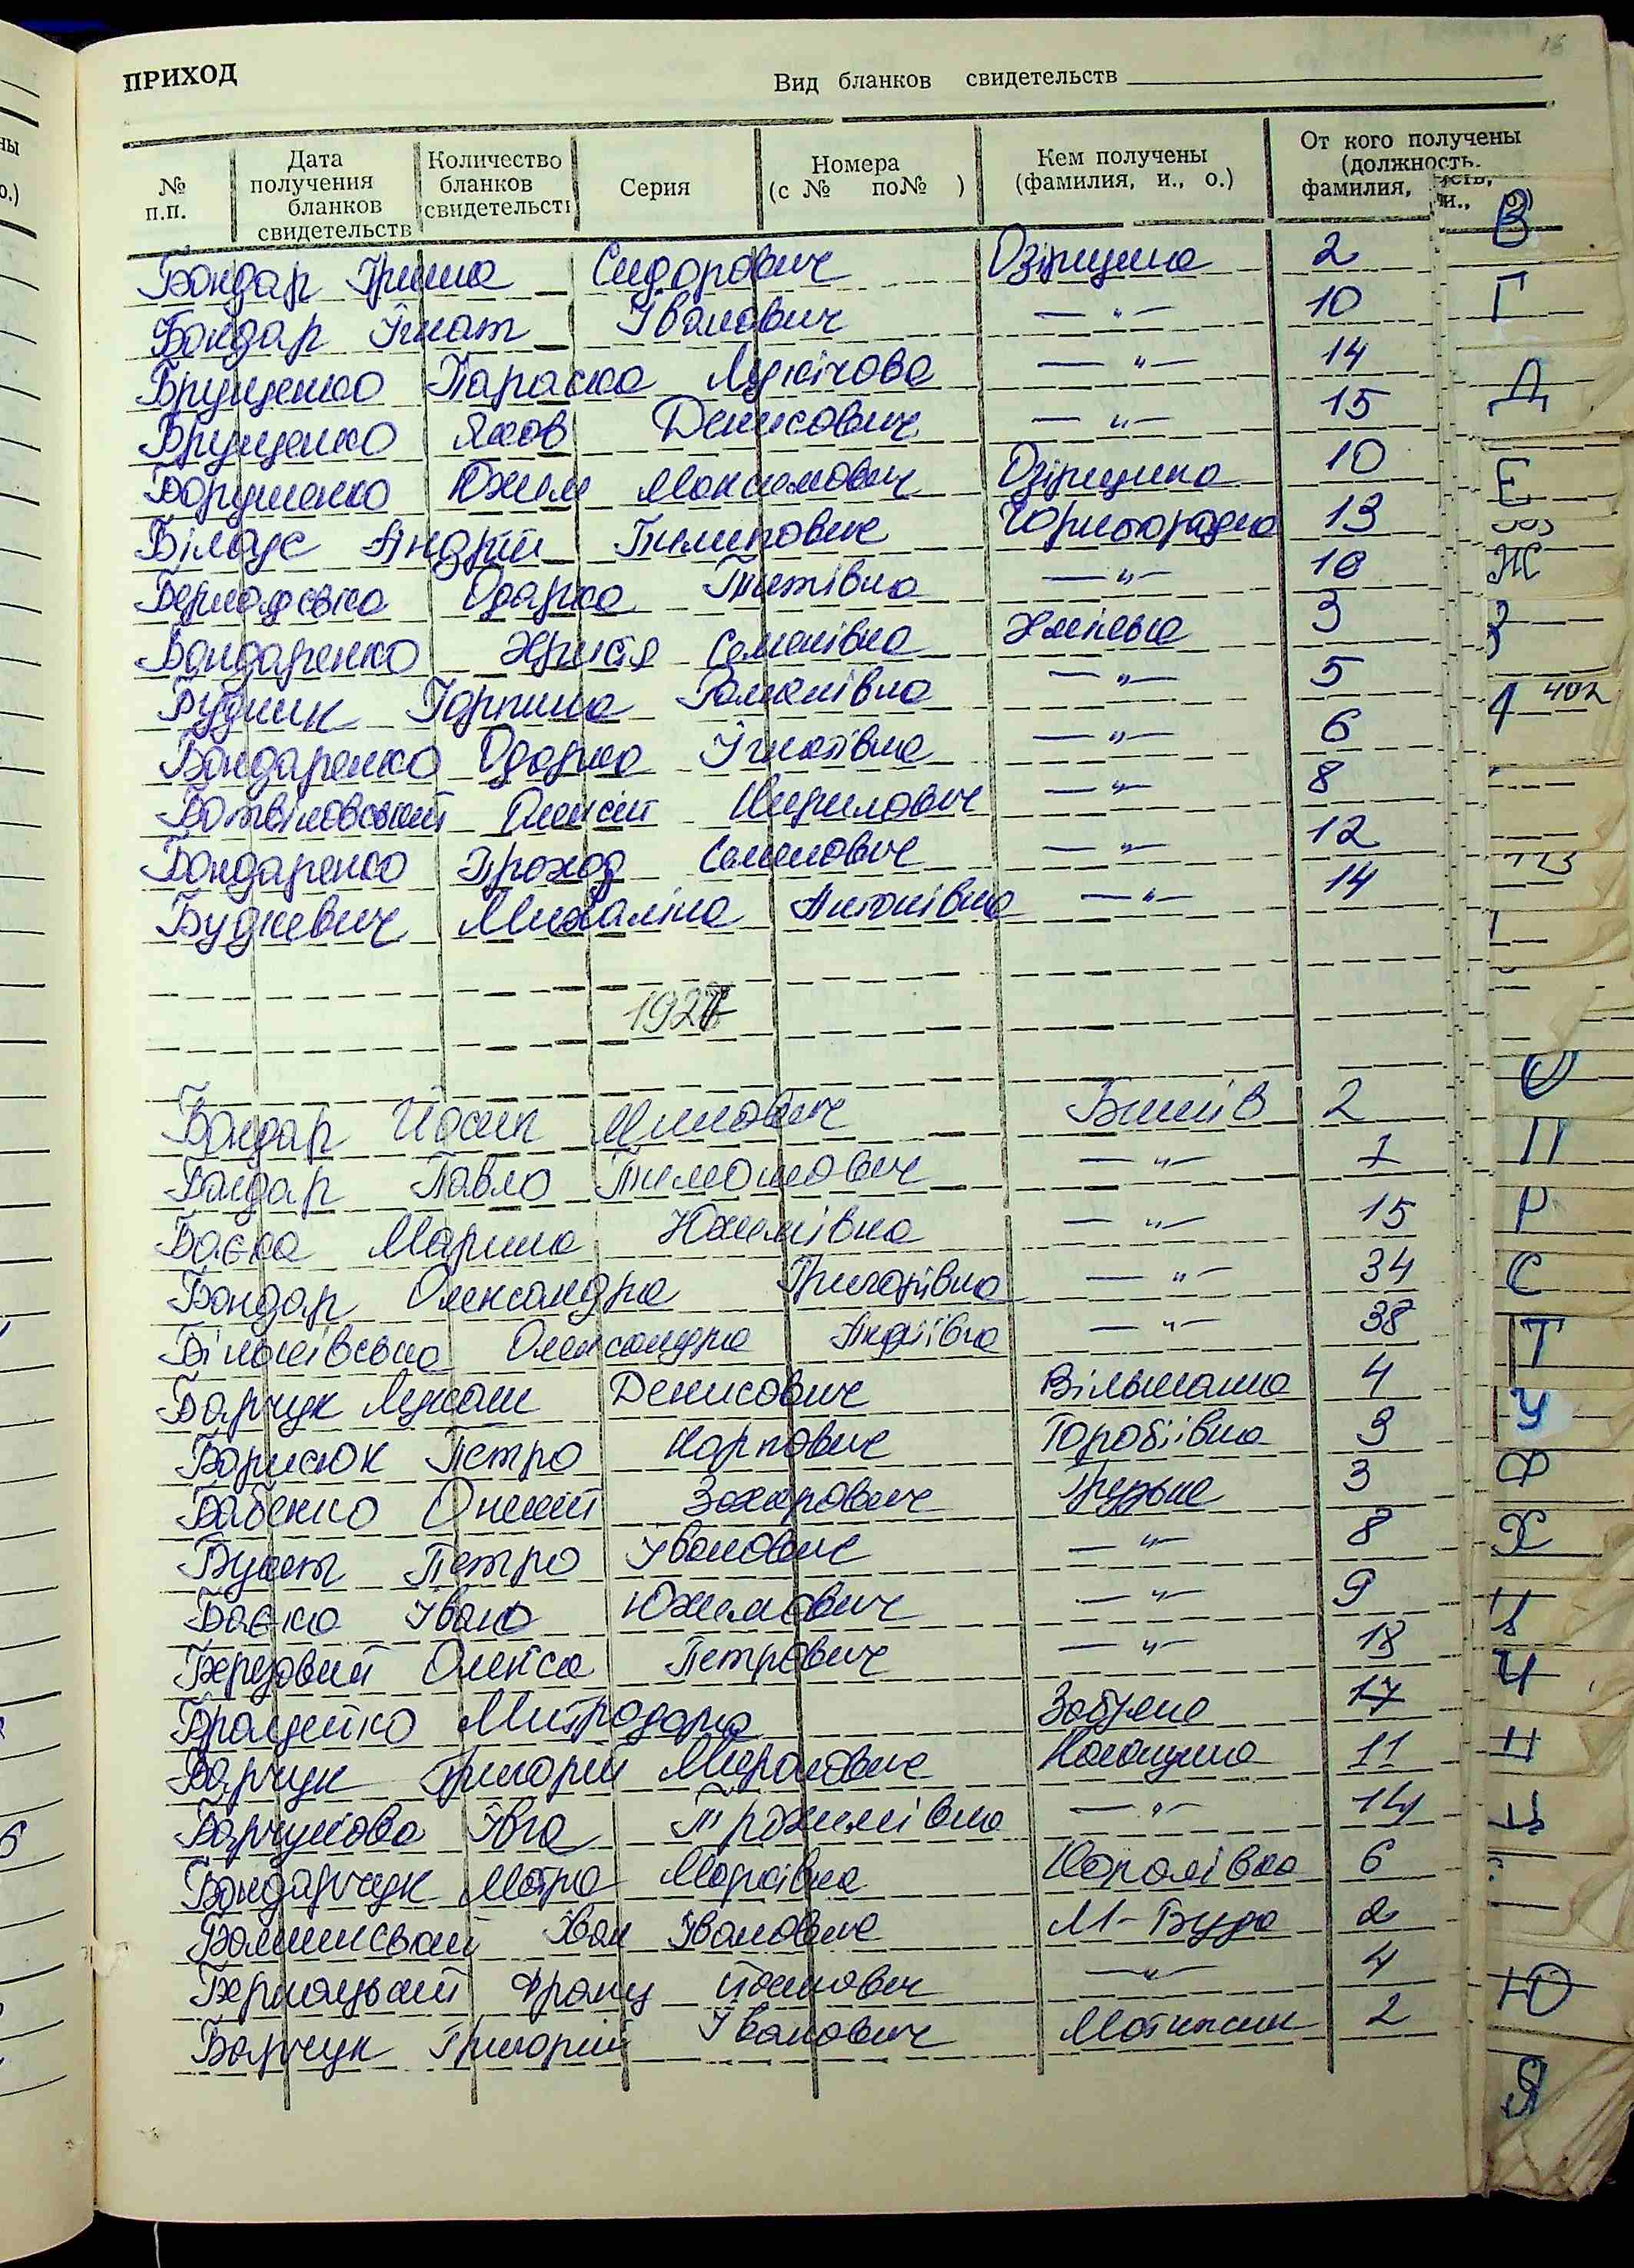 16
ПРИХОД
Вид бланков свидетельств
№ п.п.
Дата получения бланков свидетельств
Количество бланков свидетельств
Серия
Номера (с № по№ )
Кем получены (фамилия, и., о.)
От кого получены (должность. фамилия, и., о.)
Бондар Ярина Сидорович Озірщина 2
Бондар Ігнат Іванович — " — 10
Брущенко Параска Лукічова — " — 14
Брущенко Яков Денисович — " — 15
Борушенко Юхим Максимович Озірщина 10
Білаус Андрій Пилипович Чорногородка 13
Бернадська Одарка Титівна — " — 10
Бондаренко Христя Семенівна Хмільна 3
Будник Горпина Романівна — " — 5
Бондаренко Одарка Ігнатівна — " — 6
Ботвіновський Олексій Кирилович — " — 8
Бондаренко Проход Семенович — " — 12
Будкевич Михаліна Антонівна — " — 14
1927
Бондар Йосип Минович Бишів 2
Бондар Павло Тимошович — " — 7
Баєка Марина Юхимівна — " — 15
Бондар Олександра Григорівна — " — 34
Більківська Олександра Андріївна — " — 38
Барчук Лукаш Денисович Вільшанка 4
Борисюк Петро Карпович Горобіївка 3
Бабенко Оникій Захарович Грузьке 3
Букет Петро Іванович — " — 8
Баєка Іван Юхимович — " — 9
Березовий Олекса Петрович — " — 18
Бращейко Митродора Забуяне 17
Барчук Григорий Миронович Наконщина 11
Барчукова Ївга Трохимівна — " — 14
Бондарчук Мотра Марківна Королівка 6
Іван Іванович М-Буда 2
Бернацький Франц Йосипович — " — 4
Барчук Григорій Іванович Мотижин 2
В
Г
Д
Е
Ж
З
402
О
П
Р
С
Т
У
Ф
Х
Ч
Ю
Я